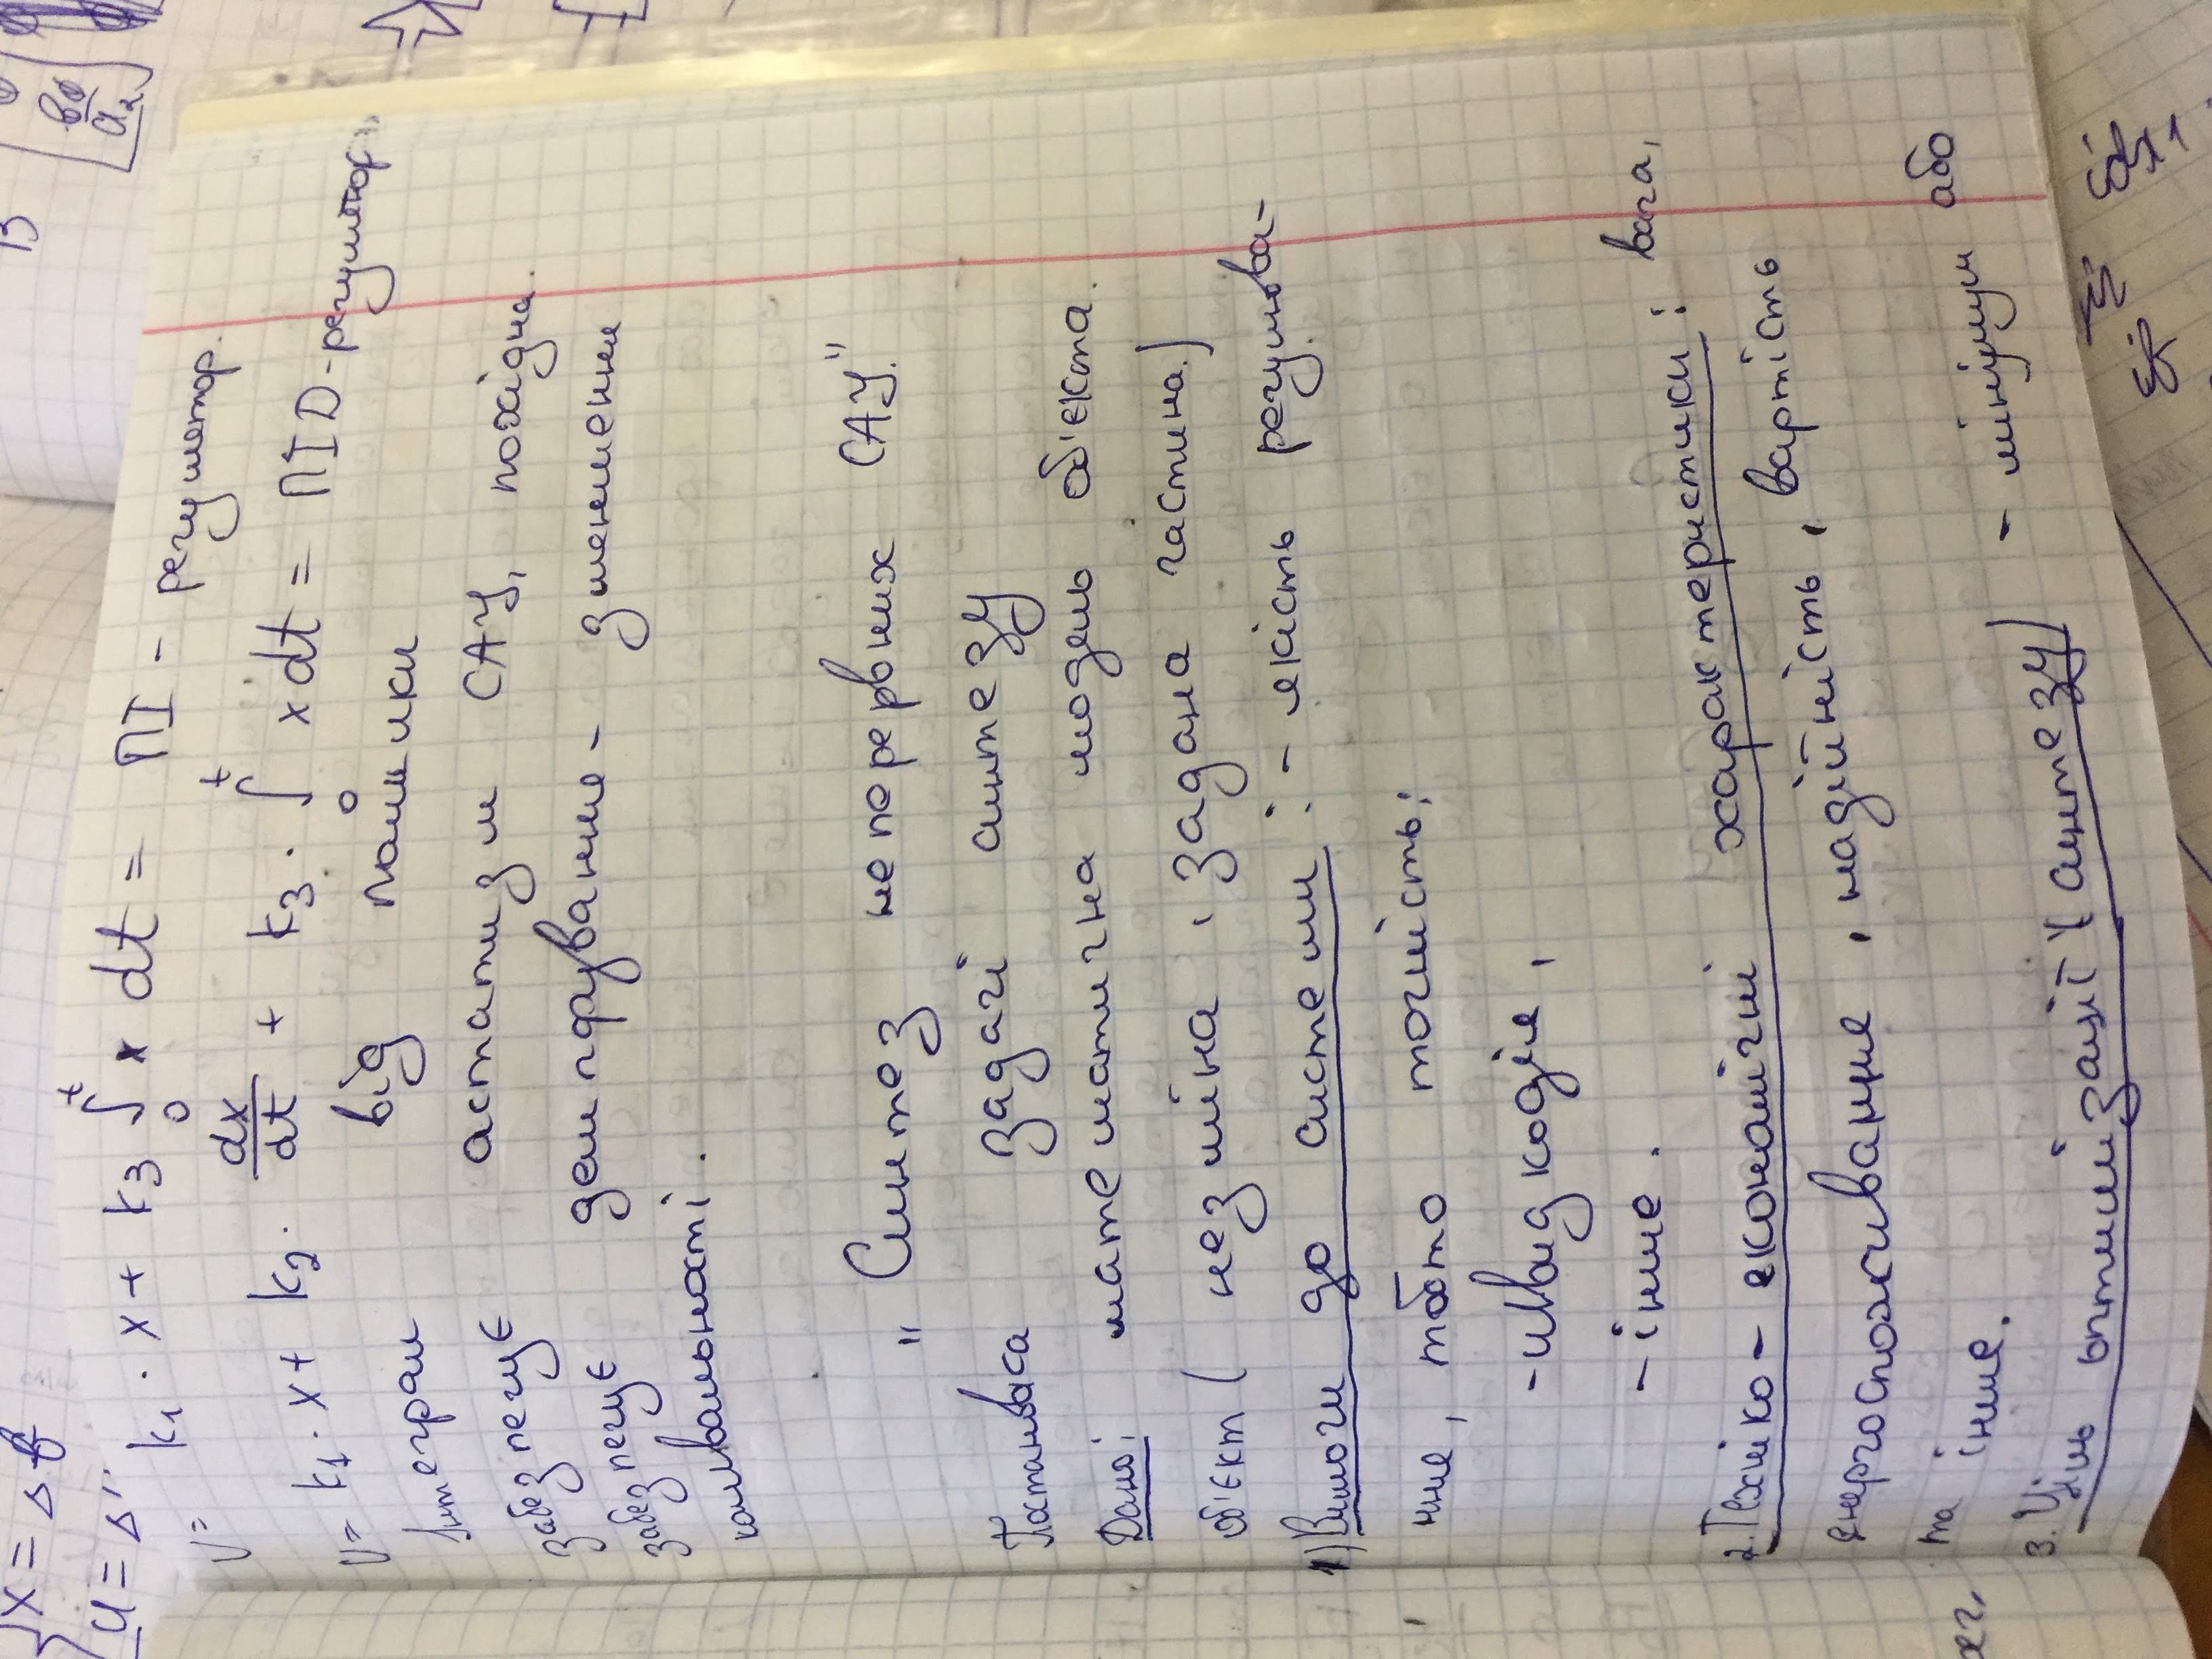 x = Δ
U = Δ
V = k₁ · x + k₃ ∫₀ᵗ x dt = ПІ - регулятор.
V = k₁ · x + k₂ · dx/dt + k₃ · ∫₀ᵗ x dt = ПІD - регулятор
Інтеграл від помилки
забезпечує астатизм САУ, похідна
забезпечує демпфування - зменшення
коливальності.
„Синтез неперервних САУ."
Постановка задачі синтезу
Дано: математична модель об'єкта.
об'єкт (незміна, задана частина.)
1) Вимоги до системи : - якість регулюва-
ння, тобто точність;
- швидкодія,
- інше.
2. Техніко - економічні характеристики : вага,
енергоспоживання, надійність, вартість
та інше.
3. Ціль оптимізації (синтезу) - мінімум або